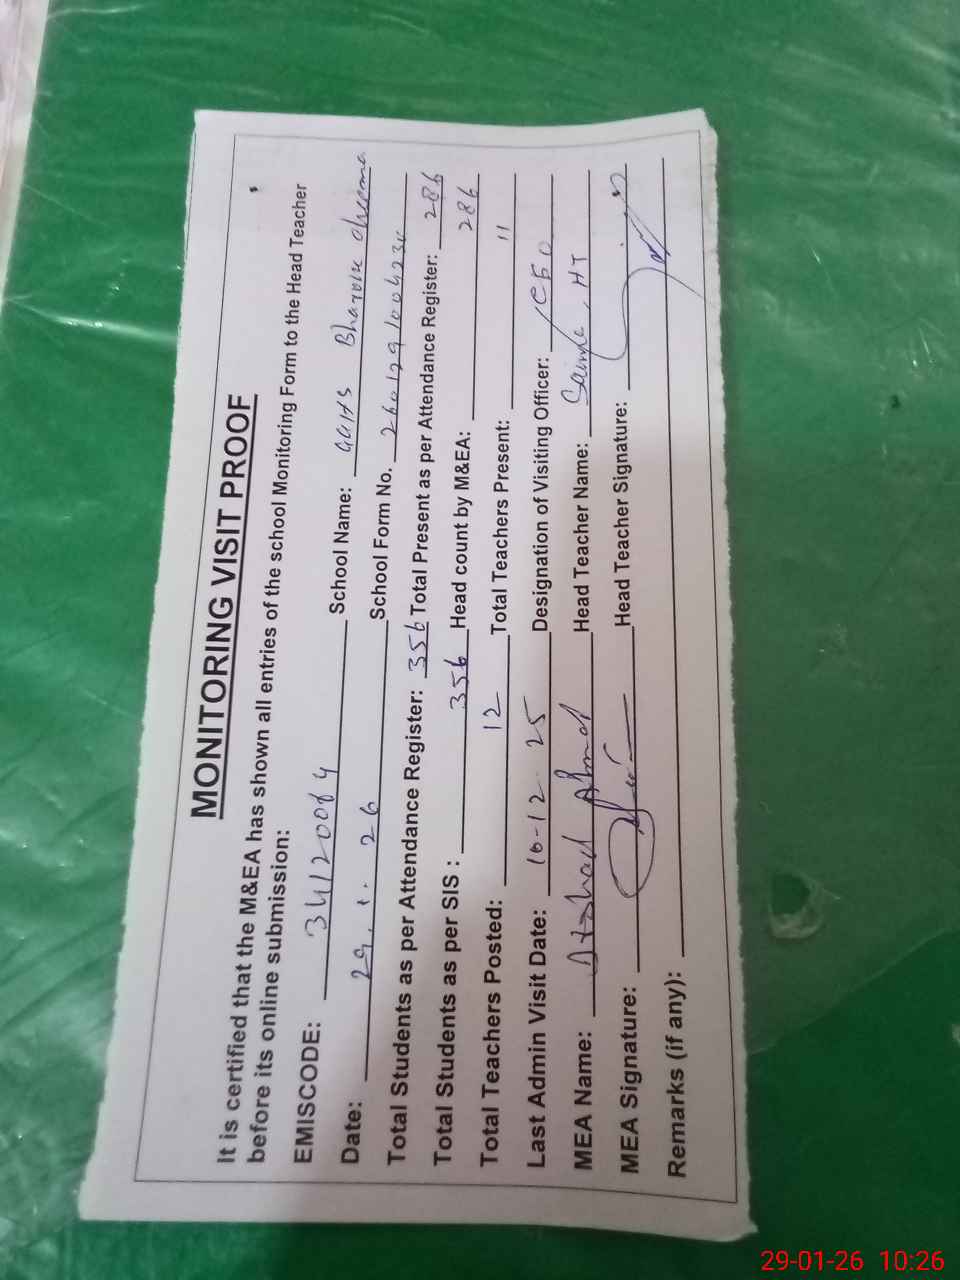 MONITORING VISIT PROOF
It is certified that the M&EA has shown all entries of the school Monitoring Form to the Head Teacher
before its online submission:
EMISCODE: 34120084 School Name: GGHS Bharoke
Date: 29.1.26 School Form No. 260129100423
Total Students as per Attendance Register: 356 Total Present as per Attendance Register: 286
Total Students as per SIS : 356 Head count by M&EA: 286
Total Teachers Posted: 12 Total Teachers Present: 11
Last Admin Visit Date: 16-12-25 Designation of Visiting Officer: CEO
MEA Name: Ahmad Head Teacher Name: Saima, HT
MEA Signature: Head Teacher Signature:
Remarks (if any):
29-01-26 10:26